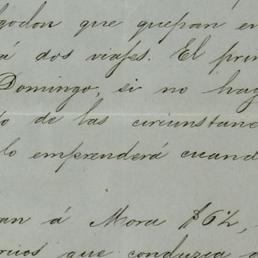 godon que quepan en
á dos viajes. El prim
Domingo, si no hay
o de las circunstanc
lo emprenderá cuand
an á Mora $62,
rios que conduzca a